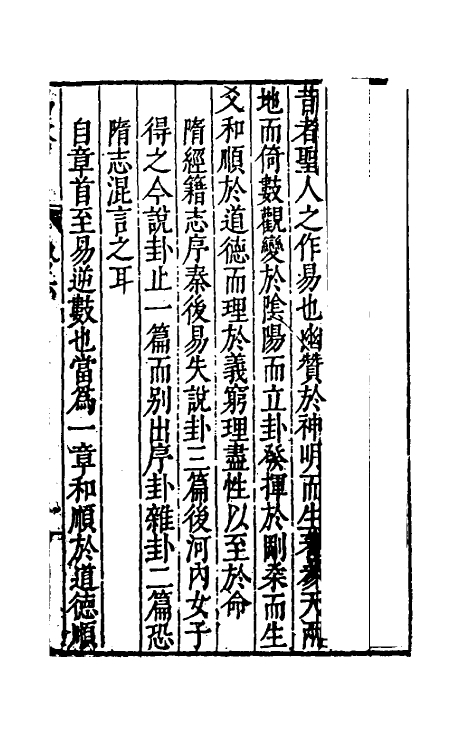 昔者聖人之作易也幽贊於神明而生蓍參天兩
地而倚數觀變於陰陽而立卦發揮於剛柔而生
爻和順於道德而理於義窮理盡性以至於命
隋經籍志序秦後易失說卦三篇後河內女子
得之今說卦止一篇而別出序卦雜卦二篇恐
隋志混言之耳
自章首至易逆數也當爲一章和順於道德順